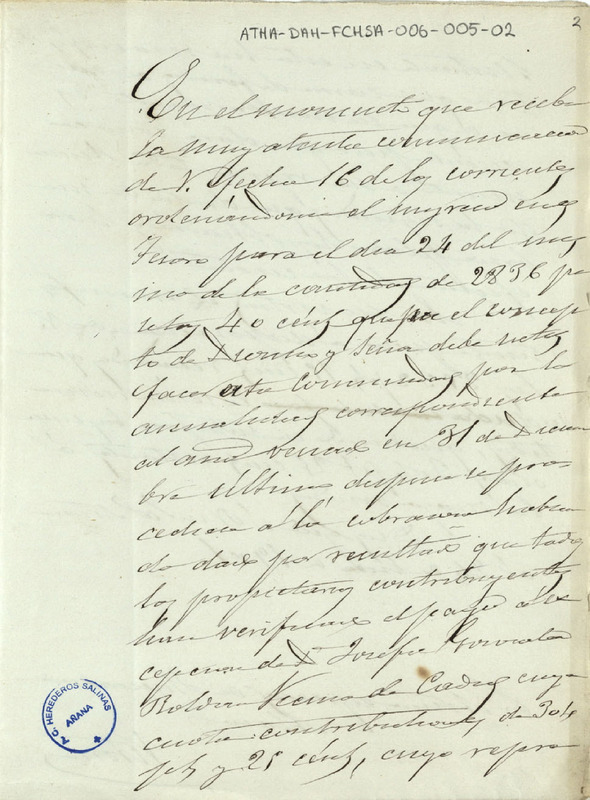 ATHA-DAH-FCHSA-006-005-02
2
En el momento que recibi
la muy atenta comunicacion
de V. fecha 16 de los corrientes
ordenándome el ingreso en ese
Tesoro para el dia 24 del mis
mo de la cantidad de 2836 pe
setas 40 cént que por el concep
to de y Seña debe
esta Comunidad por la
anualidad correspondiente
al año vencido en 31 de Diciem
bre último dispuse se pro
cediera á la cobranza habien
do dado por resultado que todos
los propietarios contribuyentes
han verificado el pago á es
cepcion de Dª Josefa
Roldan Vecina de Cadiz cuya
cuota contributiva es de 304
pts y 25 cént, cuyo repre
P.C. HEREDEROS SALINAS
ARANA